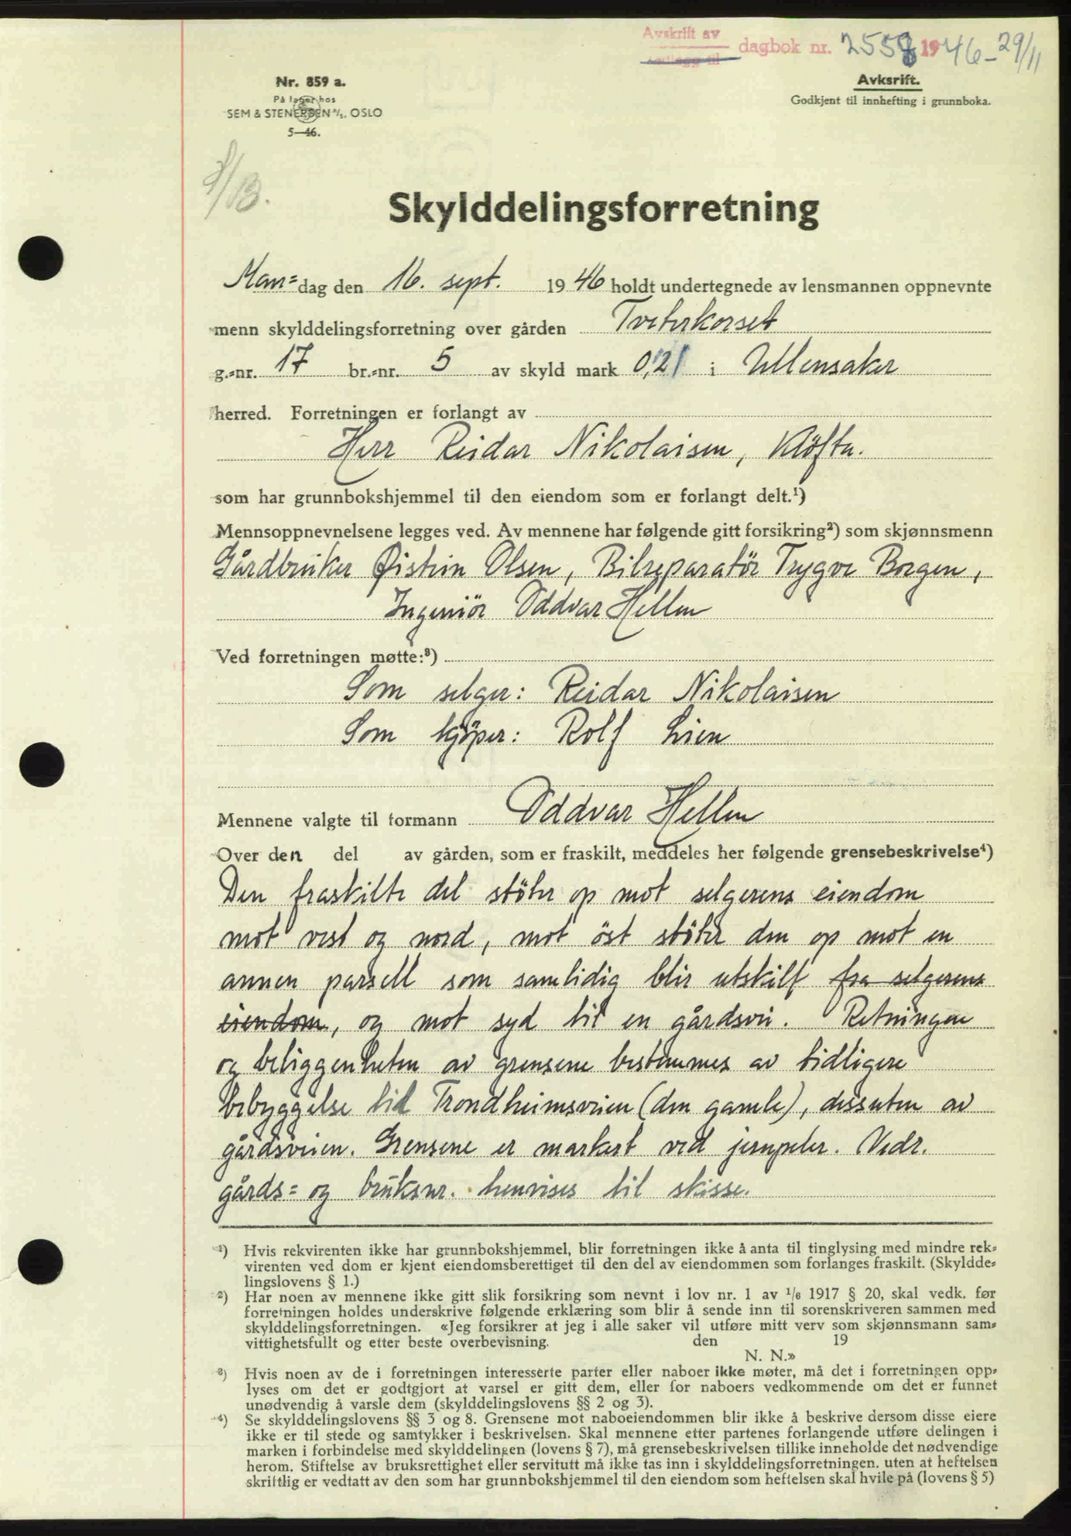 Avskrift av dagbok nr. 2558 1946 - 29/11
Nr. 859 a.
På lager hos
SEM & STENERSEN A/S. OSLO
5—46.
Avksrift.
Godkjent til innhefting i grunnboka.
Skylddelingsforretning
Man= dag den 16. sept. 1946 holdt undertegnede av lensmannen oppnevnte
menn skylddelingsforretning over gården Tveterkorset
g.=nr. 17 br.=nr. 5 av skyld mark 0,21 i Ullensaker
herred. Forretningen er forlangt av
Herr Reidar Nikolaisen, Kløfta.
som har grunnbokshjemmel til den eiendom som er forlangt delt.¹)
Mennsoppnevnelsene legges ved. Av mennene har følgende gitt forsikring²) som skjønnsmenn
Gårdbruker Øistein Olsen, Bilreparatör Trygve Borgen,
Ingeniör Oddvar Hellen
Ved forretningen møtte:³)
Som selger: Reidar Nikolaisen
Som kjöper: Rolf Lien
Mennene valgte til formann Oddvar Hellen
Over den del av gården, som er fraskilt, meddeles her følgende grensebeskrivelse⁴)
Den fraskilte del stöter op mot selgerens eiendom
mot vest og nord, mot öst stöter den op mot en
annen parsell som samtidig blir utskilt fra selgerens
eiendom, og mot syd til en gårdsvei. Retningen
og beliggenheten av grensene bestemmes av tidligere
bebyggelse til Trondheimsveien (den gamle), dessuten av
gårdsveien. Grensene er markert ved jernpeler. Vedr.
gårds= og bruksnr. henvises til skisse.
¹) Hvis rekvirenten ikke har grunnbokshjemmel, blir forretningen ikke å anta til tinglysing med mindre rek=
virenten ved dom er kjent eiendomsberettiget til den del av eiendommen som forlanges fraskilt. (Skyldde=
lingslovens § 1.)
²) Har noen av mennene ikke gitt slik forsikring som nevnt i lov nr. 1 av 1/6 1917 § 20, skal vedk. før
forretningen holdes underskrive følgende erklæring som blir å sende inn til sorenskriveren sammen med
skylddelingsforretningen. «Jeg forsikrer at jeg i alle saker vil utføre mitt verv som skjønnsmann sam=
vittighetsfullt og etter beste overbevisning. den 19
N. N.»
³) Hvis noen av de i forretningen interesserte parter eller naboer ikke møter, må det i forretningen opp=
lyses om det er godtgjort at varsel er gitt dem, eller for naboers vedkommende om det er funnet
unødvendig å varsle dem (skylddelingslovens §§ 2 og 3).
⁴) Se skylddelingslovens §§ 3 og 8. Grensene mot naboeiendommen blir ikke å beskrive dersom disse eiere
ikke er til stede og samtykker i beskrivelsen. Skal mennene etter partenes forlangende utføre delingen i
marken i forbindelse med skylddelingen (lovens § 7), må grensebeskrivelsen tillike inneholde det nødvendige
herom. Stiftelse av bruksrettighet eller servitutt må ikke tas inn i skylddelingsforretningen, uten at heftelsen
skriftlig er vedtatt av den som har grunnbokshjemmel til den eiendom som heftelsen skal hvile på (lovens § 5)